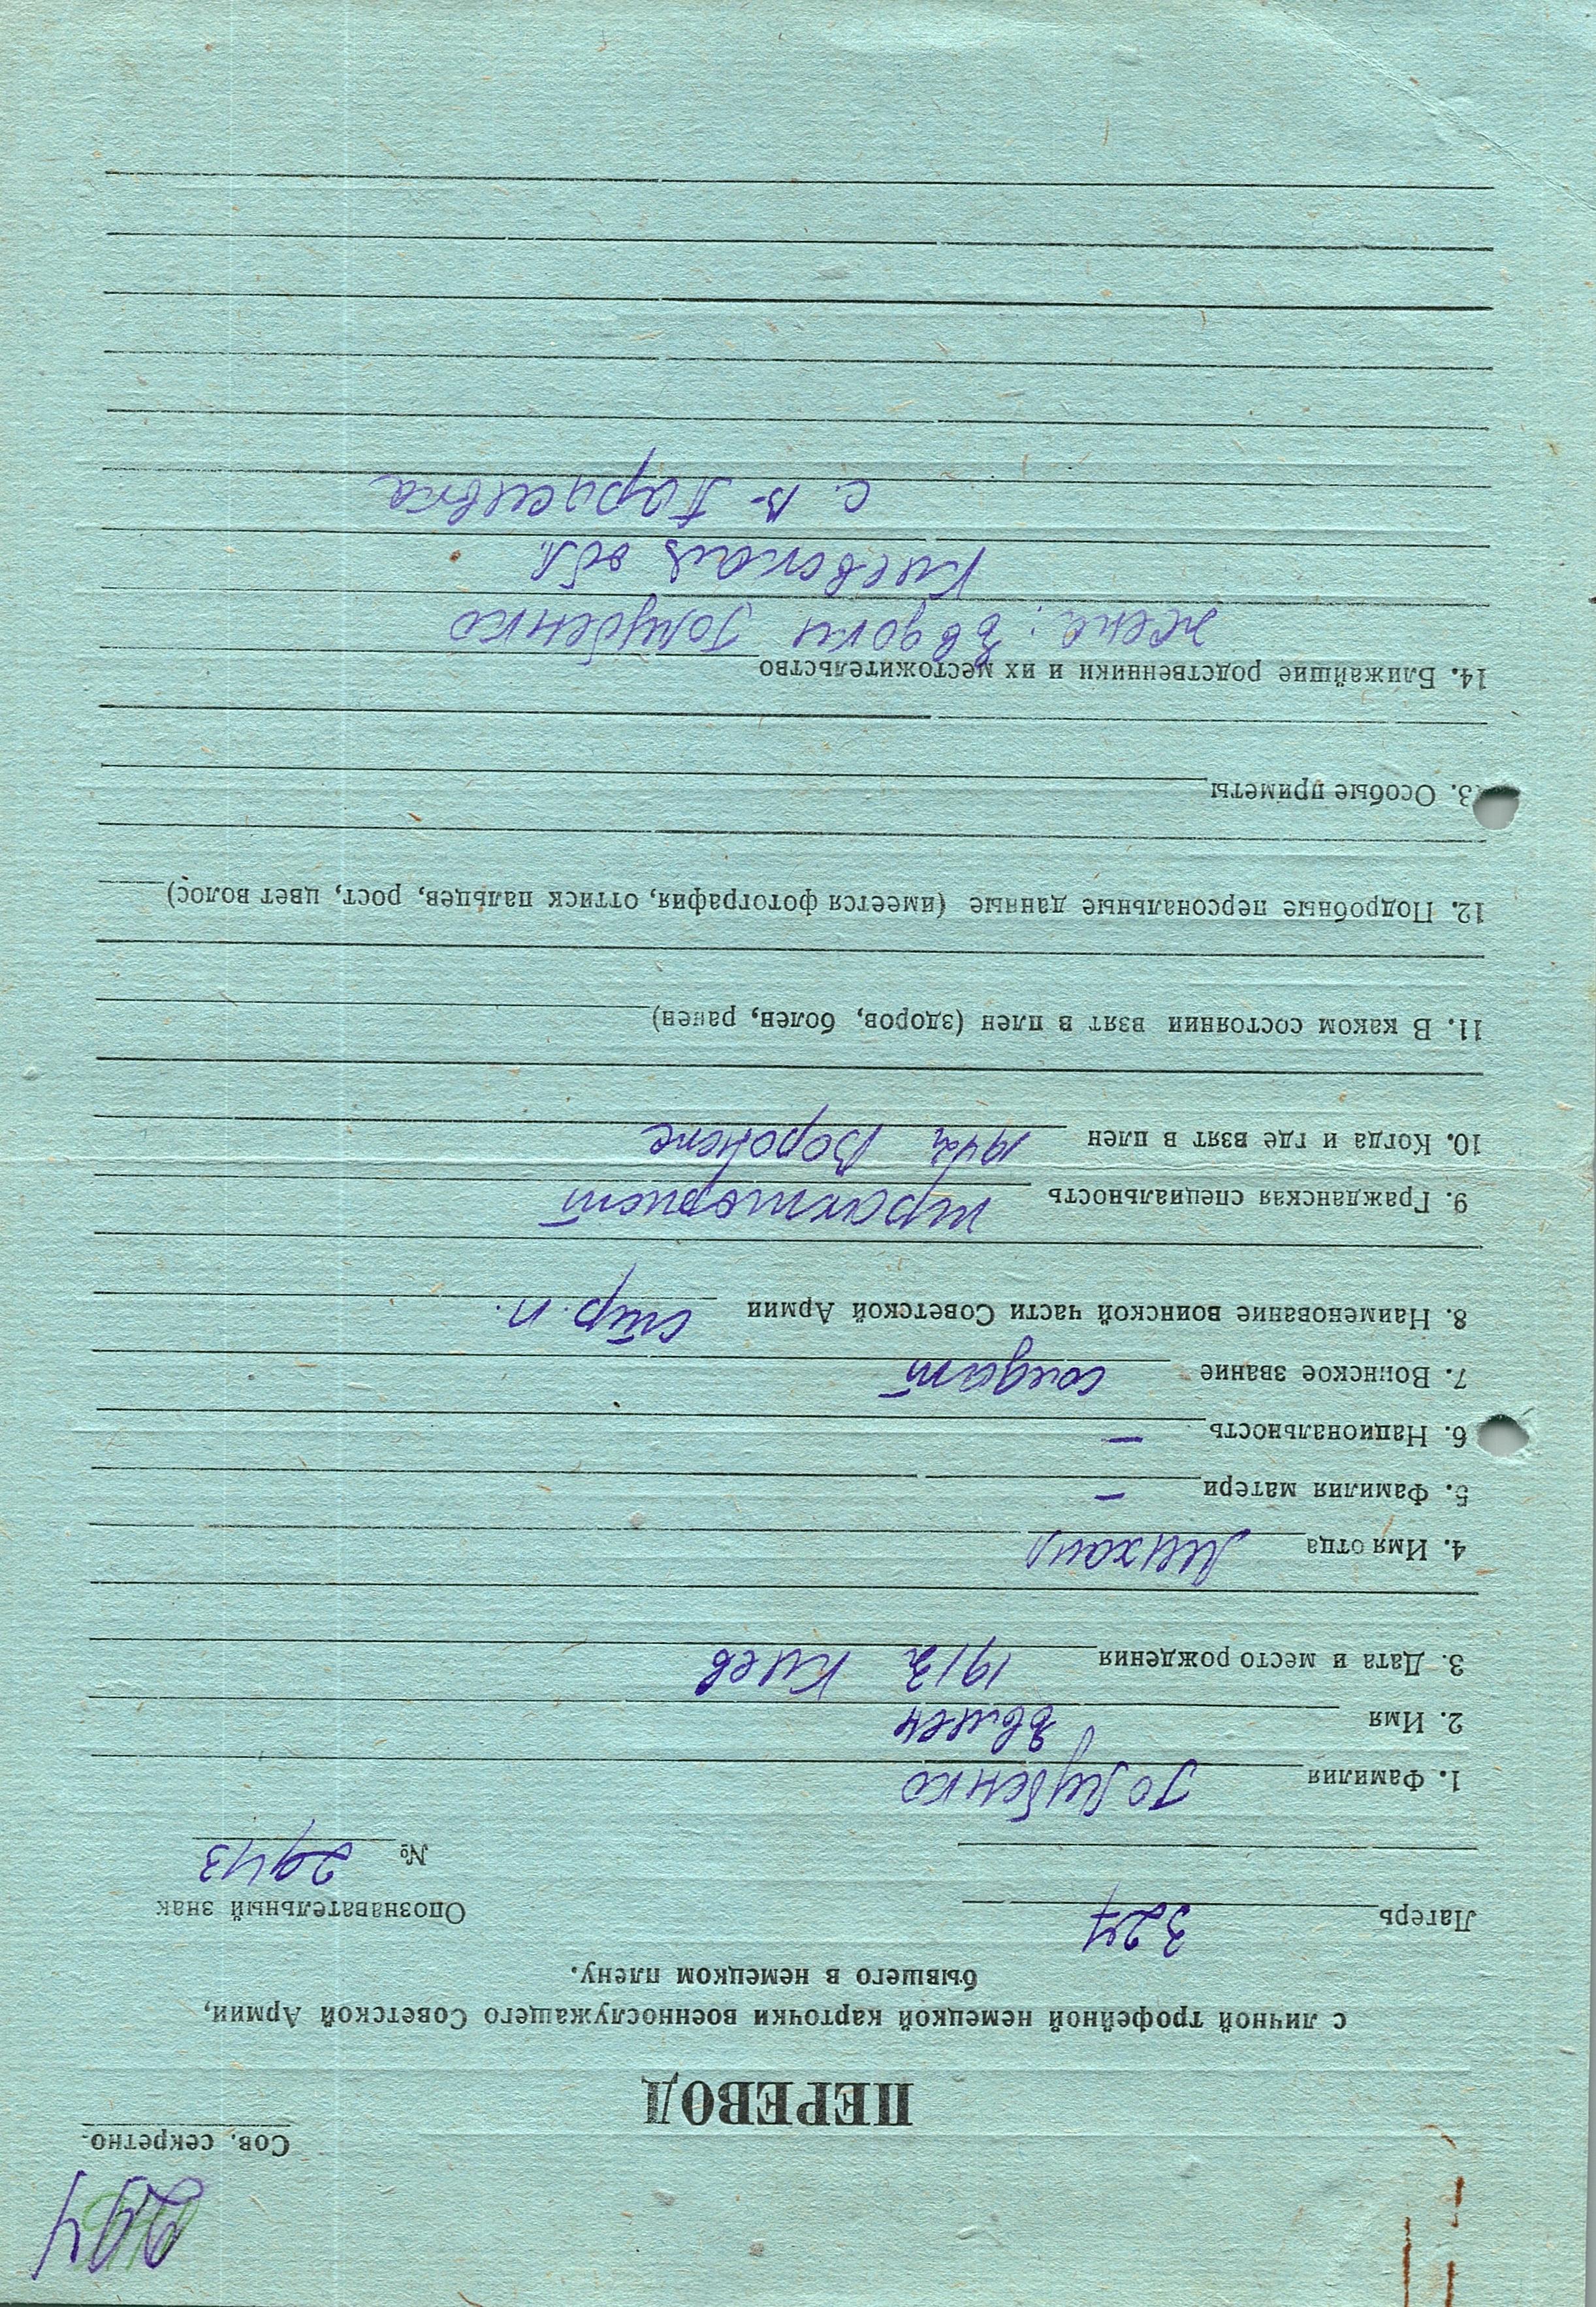 Сов. секретно.
ПЕРЕВОД
с личной трофейной немецкой карточки военнослужащего Советской Армии,
бывшего в немецком плену.
Лагерь 327
Опознавательный знак
№ 2943
1. Фамилия Голубенко
2. Имя
3. Дата и место рождения 1912 Киев
4. Имя отца Михаил
5. Фамилия матери –
6. Национальность –
7. Воинское звание солдат
8. Наименование воинской части Советской Армии стр. п.
9. Гражданская специальность тракторист
10. Когда и где взят в плен 1942 Воронеже
11. В каком состоянии взят в плен (здоров, болен, ранен)
12. Подробные персональные данные (имеется фотография, оттиск пальцев, рост, цвет волос)
3. Особые приметы
14. Ближайшие родственники и их местожительство
жена: Евдоки Голубенко
Киевская обл.
с. В-